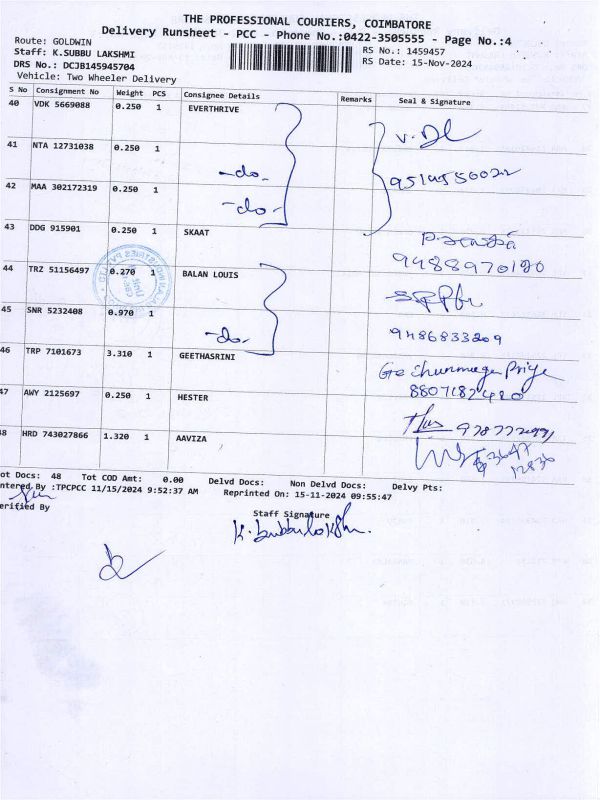 THE PROFESSIONAL COURIERS, COIMBATORE
Delivery Runsheet - PCC - Phone No.:0422-3505555 - Page No.:4
Route: GOLDWIN
Staff: K.SUBBU LAKSHMI RS No.: 1459457
DRS No.: DCJB145945704 RS Date: 15-Nov-2024
Vehicle: Two Wheeler Delivery
S No Consignment No Weight PCS Consignee Details Remarks Seal & Signature
40 VDK 5669088 0.250 1 EVERTHRIVE
41 NTA 12731038 0.250 1 -do-
42 MAA 302172319 0.250 1 -do-
43 DDG 915901 0.250 1 SKAAT
9488970180
44 TRZ 51156497 0.270 1 BALAN LOUIS
45 SNR 5232408 0.970 1 -do- 9486833209
46 TRP 7101673 3.310 1 GEETHASRINI
8807182420
47 AWY 2125697 0.250 1 HESTER
48 HRD 743027866 1.320 1 AAVIZA
Tot Docs: 48 Tot COD Amt: 0.00 Delvd Docs: Non Delvd Docs: Delvy Pts:
Entered By :TPCPCC 11/15/2024 9:52:37 AM Reprinted On: 15-11-2024 09:55:47
Verified By Staff Signature
K. Subbulakshmi.